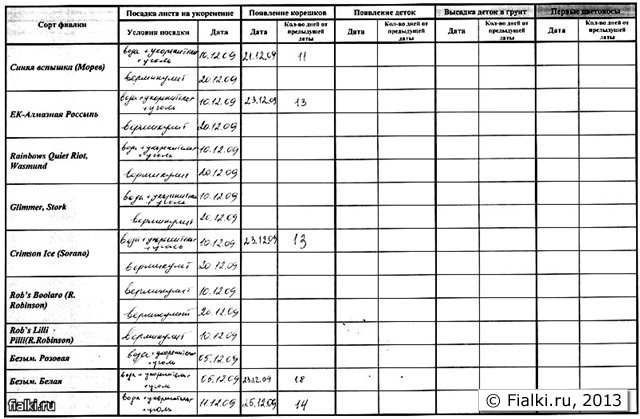 Сорт фиалки Посадка листа на укоренение Появление корешков Появление деток Высадка деток в грунт Первые цветоносы
Условия посадки Дата Дата Кол-во дней от предыдущей даты Дата Кол-во дней от предыдущей даты Дата Кол-во дней от предыдущей даты Дата Кол-во дней от предыдущей даты
Синяя вспышка (Морев) вода + укоренитель + уголь 10.12.09 21.12.09 11
вермикулит 20.12.09
ЕК-Алмазная Россыпь вода + укоренитель + уголь 10.12.09 23.12.09 13
вермикулит 20.12.09
Rainbows Quiet Riot, Wasmund вода + укоренитель + уголь 10.12.09
вермикулит 20.12.09
Glimmer, Stork вода + укоренитель + уголь 10.12.09
вермикулит 20.12.09
Crimson Ice (Sorano) вода + укоренитель + уголь 10.12.09 23.12.09 13
вермикулит 20.12.09
Rob's Boolaro (R. Robinson) вермикулит 10.12.09
вермикулит 20.12.09
Rob's Lilli Pilli(R.Robinson) вермикулит 10.12.09
Безым. Розовая вода + укоренитель + уголь 05.12.09
Безым. Белая вода + укоренитель + уголь 05.12.09 23.12.09 18
вода + укоренитель + уголь 11.12.09 25.12.09 14
fialki.ru
© Fialki.ru, 2013